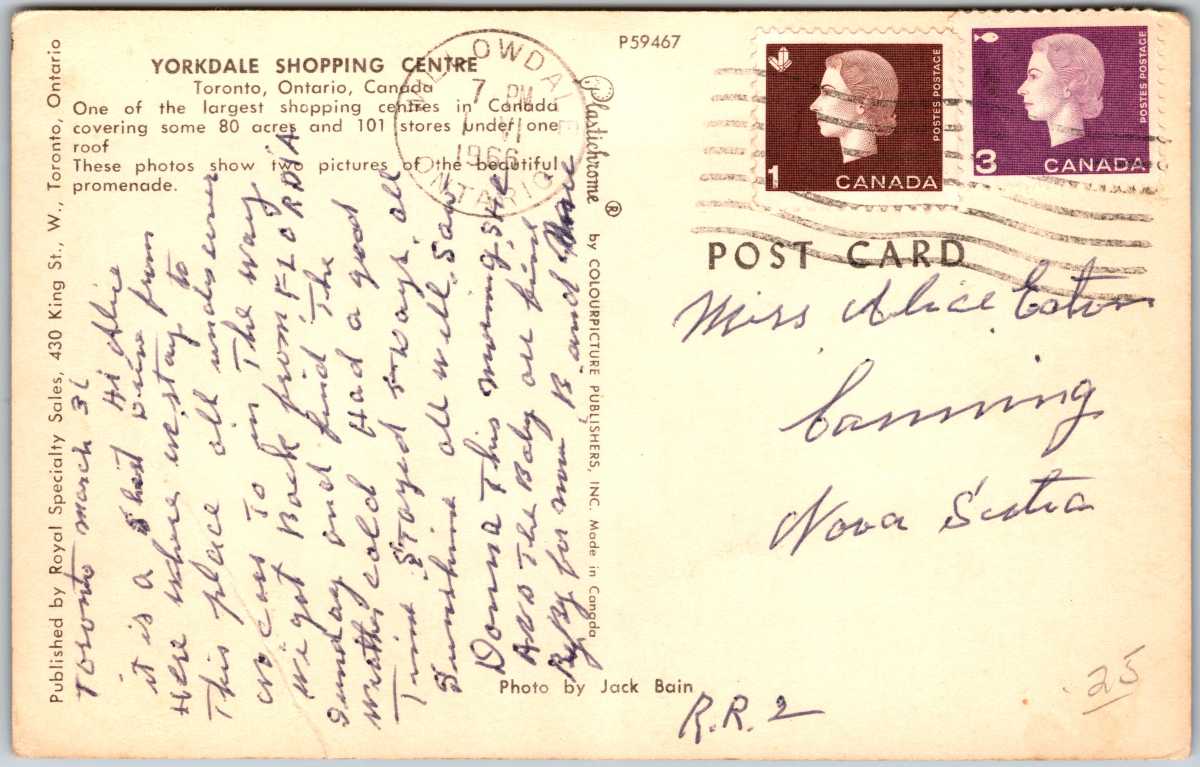 YORKDALE SHOPPING CENTRE
Toronto, Ontario, Canada
One of the largest shopping centres in Canada
covering some 80 acres and 101 stores under one
roof
These photos show two pictures of the beautiful
promenade.
Published by Royal Specialty Sales, 430 King St., W., Toronto, Ontario
Toronto march 31
Hi Alice
it is a Sheet Down from
Here where we stay to
This place all under one
We got Back from FLORIDA
Sunday and find The
weather cold Had a good
Time Stayed away all
Sunshine all well Saw
Donna This morning SHe
AND The Baby are fine
By By for now B and
Plastichrome ® by COLOURPICTURE PUBLISHERS, INC. Made in Canada
Photo by Jack Bain
P59467
WILLOWDALE
7 PM
VI
1966
ONTARIO
1
CANADA
POSTES POSTAGE
3
CANADA
POSTES POSTAGE
POST CARD
Miss Alice Eaton
Canning
Nova Scotia
R.R. 2
.25